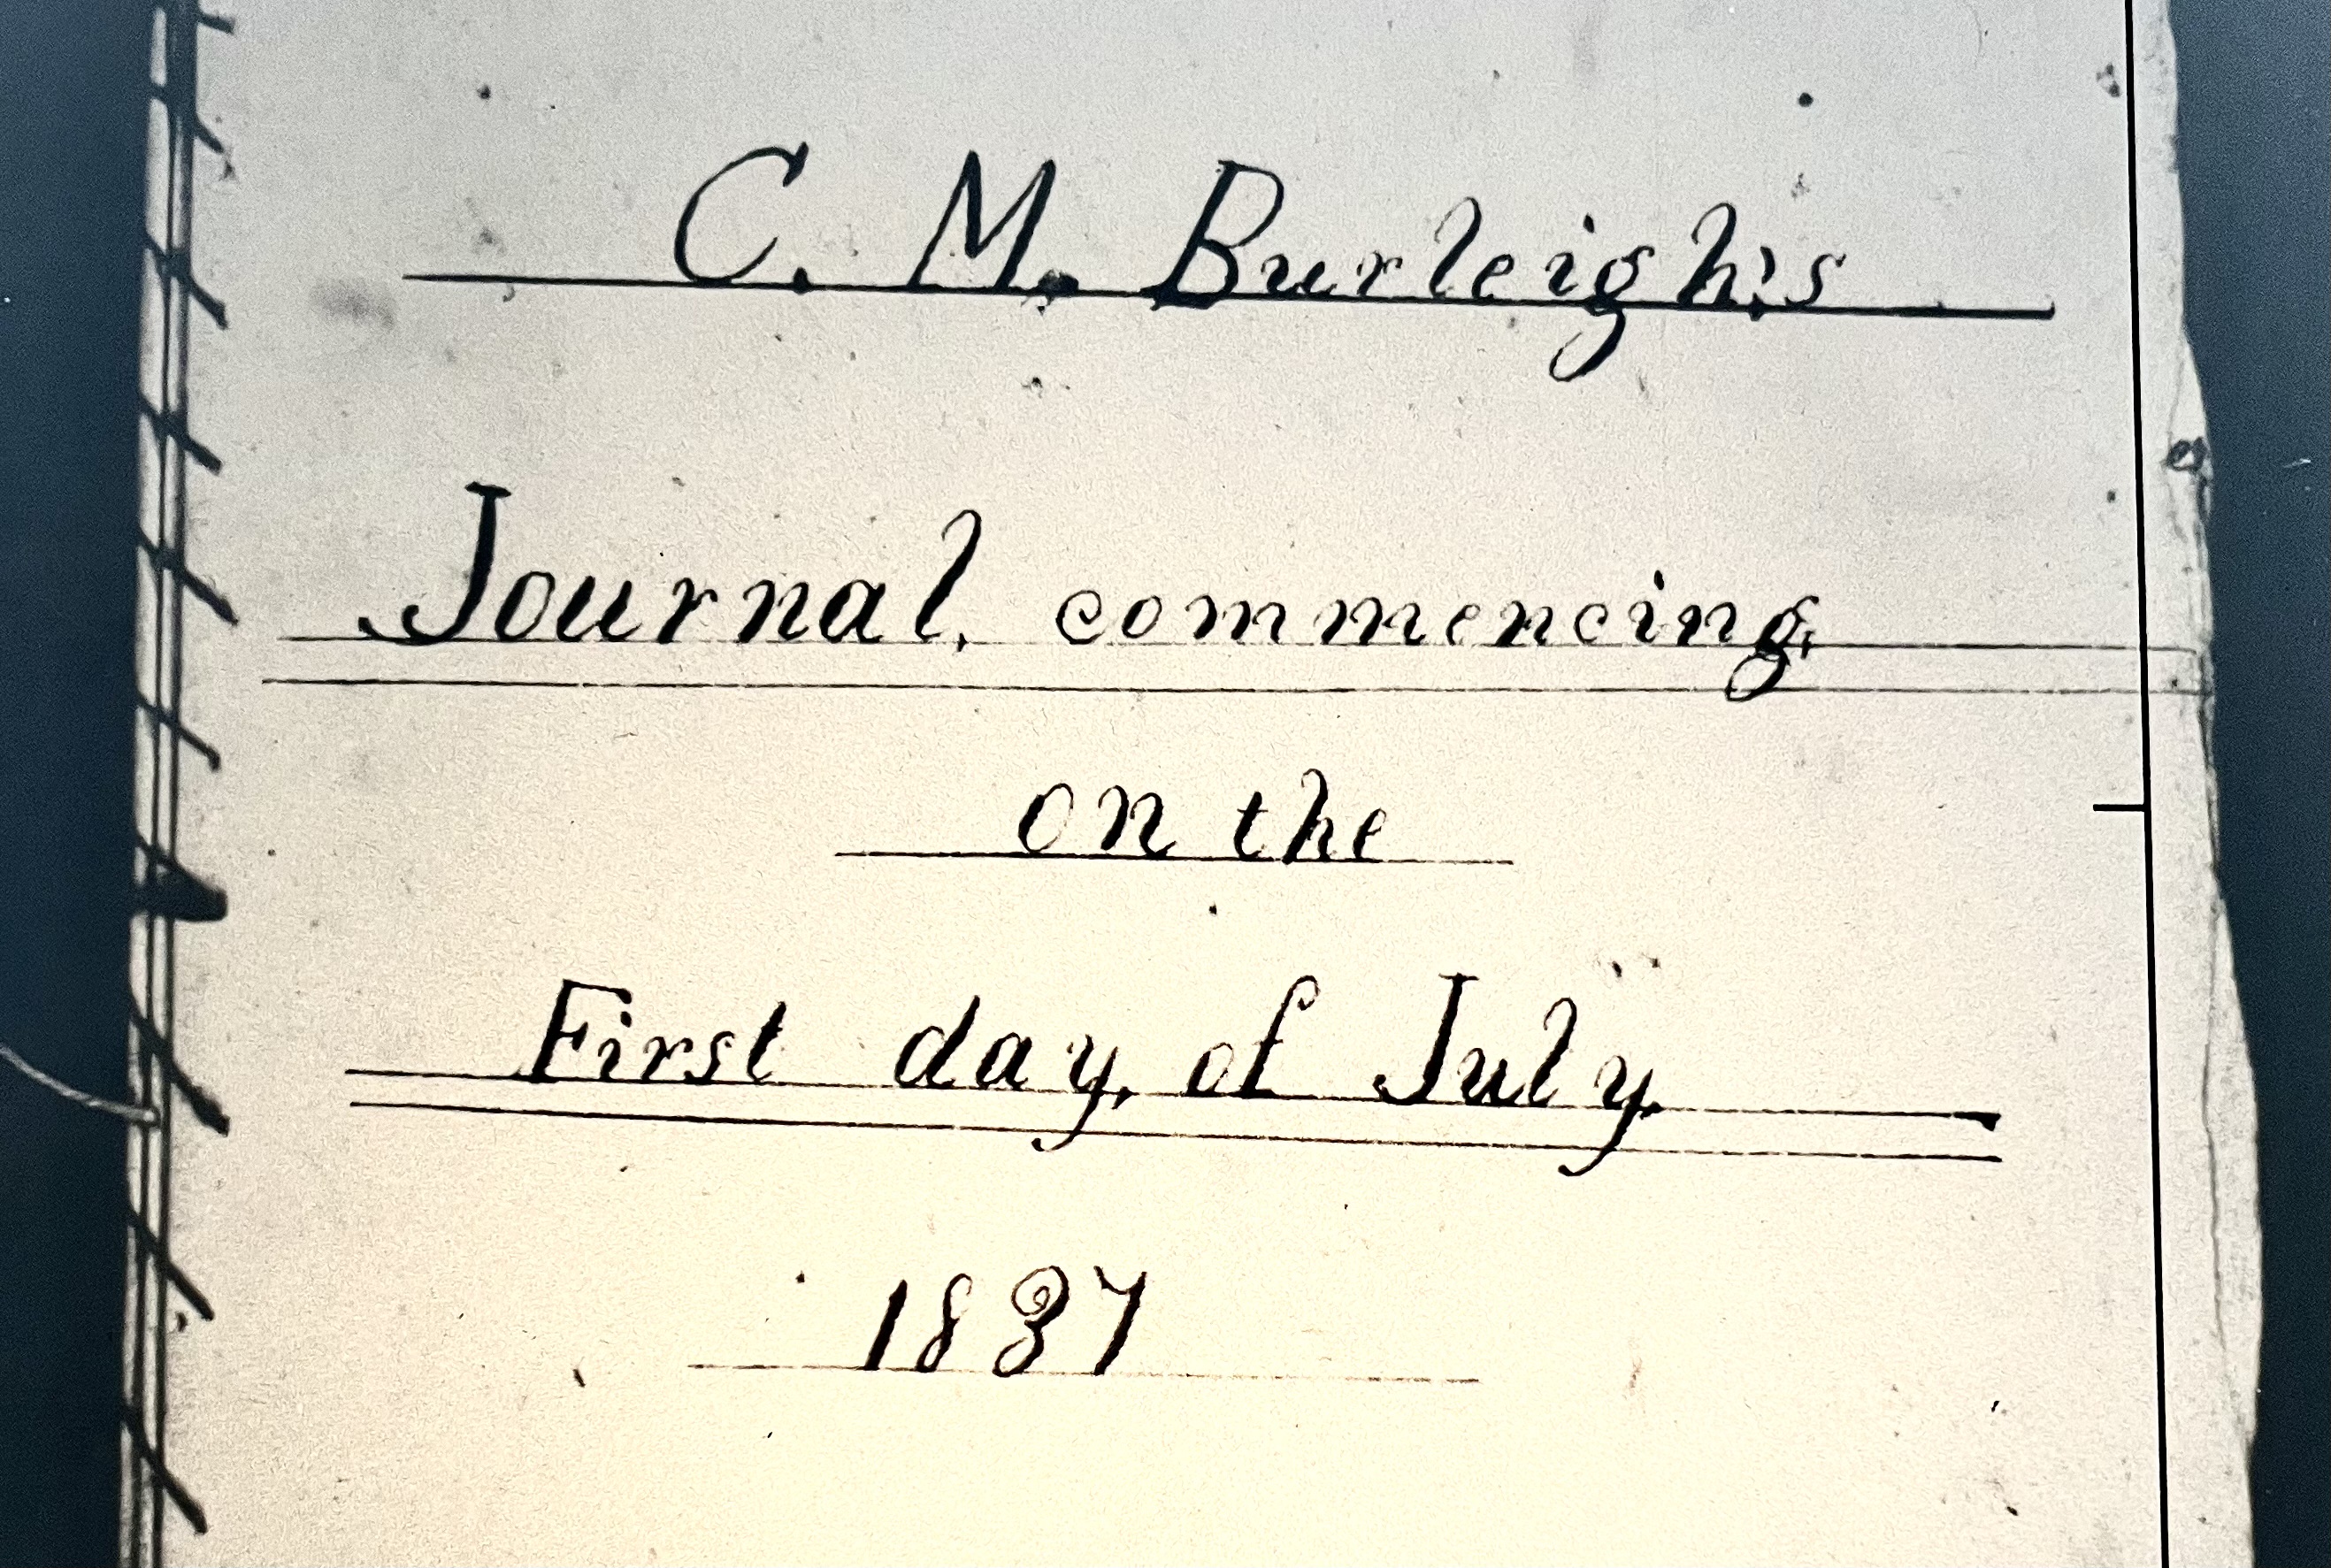 C. M. Burleigh's
Journal, commencing,
on the
First day, of July.
1837